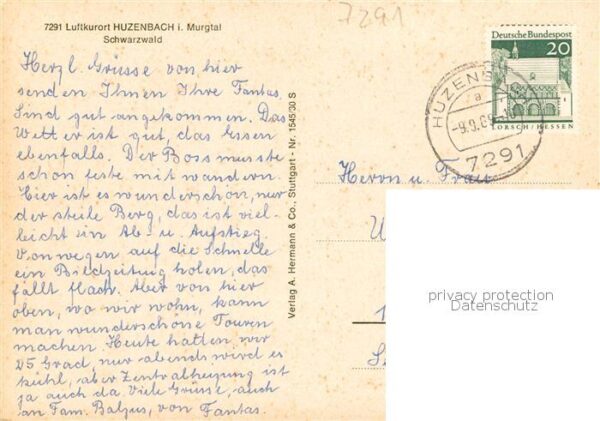 7291
7291 Luftkurort HUZENBACH i. Murgtal
Schwarzwald
Herzl. Grüsse von hier
senden Ihnen Ihre Fantas.
Sind gut angekommen. Das
Wetter ist gut, das Essen
ebenfalls. Der Boss musste
schon feste mit wandern.
Hier ist es wunderschön, nur
der steile Berg, das ist viel-
leicht ein Ab- u. Aufstieg.
Von wegen auf die Schnelle
ein Bildzeitung holen, das
fällt flach. Aber von hier
oben, wo wir wohn, kann
man wunderschöne Touren
machen. Heute hatten wir
25 Grad, nur abends wird es
kühl, aber Zentralheizung ist
ja auch da. Viele Grüsse, auch
an Fam. Balzus, von Fantas.
Verlag A. Hermann & Co., Stuttgart - Nr. 1545/30 S
Deutsche Bundespost
20
LORSCH/HESSEN
a
7291
Herrn u. Frau
privacy protection
Datenschutz